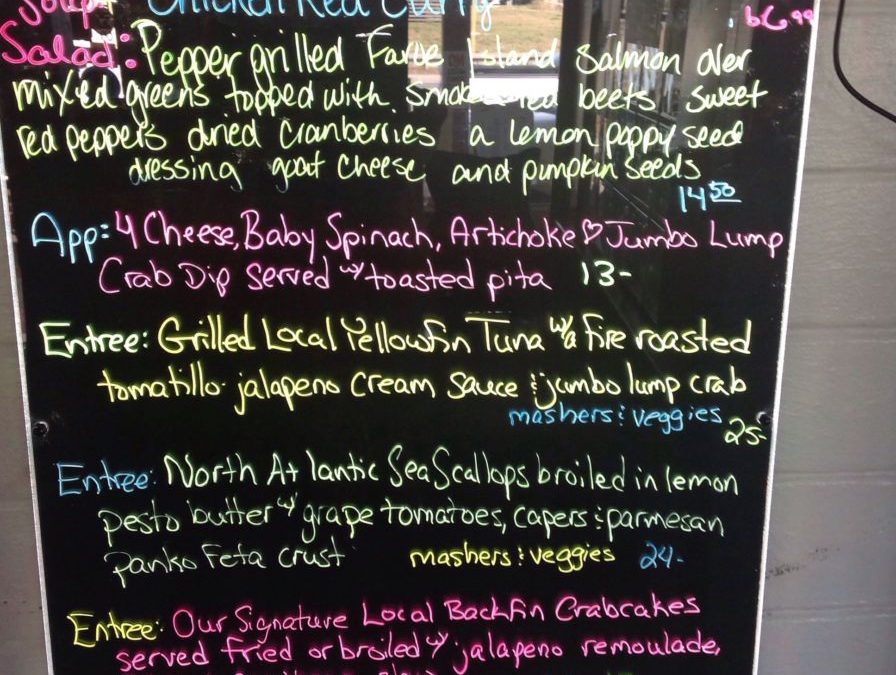 Soup: Chicken Red Curry
6.99
Salad: Pepper grilled Faroe Island Salmon over
mixed greens topped with smoked red beets sweet
red peppers dried cranberries a lemon poppy seed
dressing goat cheese and pumpkin seeds
14 50
App: 4 Cheese, Baby Spinach, Artichoke ♡ Jumbo Lump
Crab Dip served w/ toasted pita 13-
Entree: Grilled Local Yellowfin Tuna w/a fire roasted
tomatillo jalapeno cream sauce & jumbo lump crab
mashers & veggies
25-
Entree: North Atlantic Sea Scallops broiled in lemon
pesto butter w/ grape tomatoes, capers & parmesan
panko feta crust mashers & veggies 24-
Entree: Our Signature Local Backfin Crabcakes
served fried or broiled w/ jalapeno remoulade,